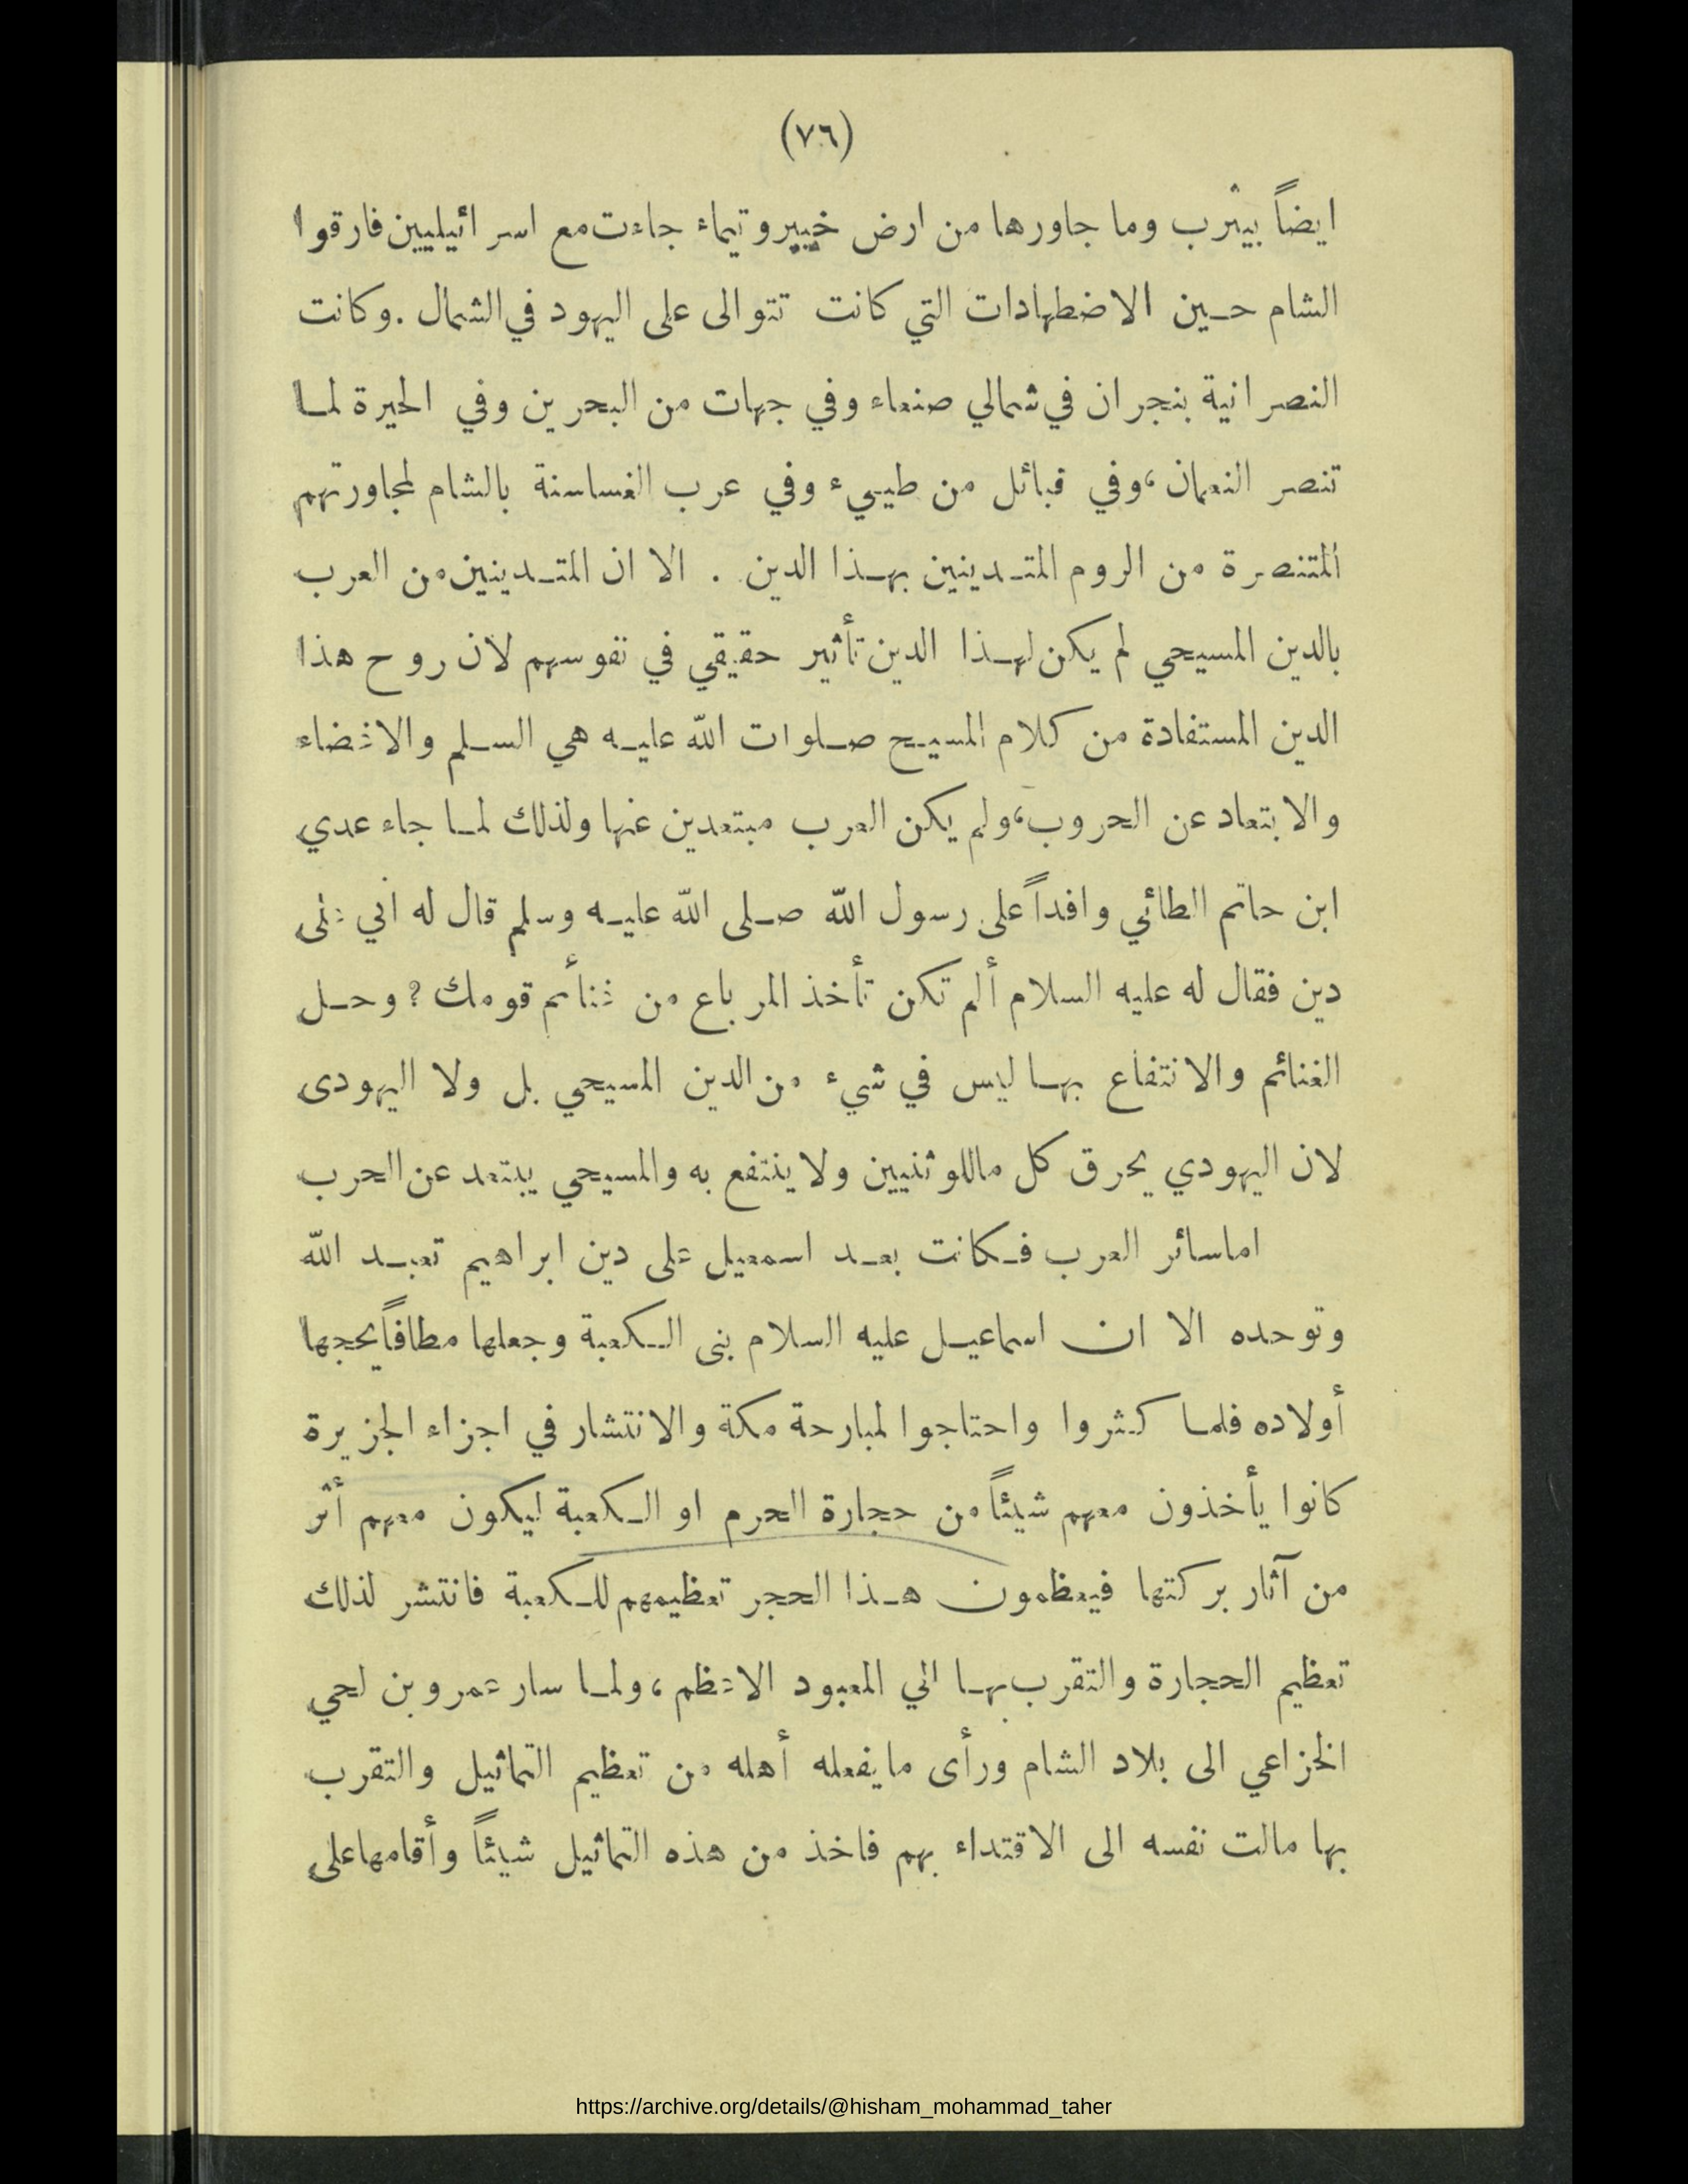 (٧٦)
ايضاً بيثرب وما جاورها من ارض خيبر وتيماء جاءت مع اسرائيليين فارقوا
الشام حين الاضطهادات التي كانت تتوالى على اليهود في الشمال . وكانت
النصرانية بنجران في شمالي صنعاء وفي جهات من البحرين وفي الحيرة لما
تنصر النعمان ، وفي قبائل من طييء وفي عرب الغساسنة بالشام لمجاورتهم
المتنصرة من الروم المتدينين بهذا الدين . الا ان المتدينين من العرب
بالدين المسيحي لم يكن لهذا الدين تأثير حقيقي في نفوسهم لان روح هذا
الدين المستفادة من كلام المسيح صلوات الله عليه هي السلم والاغضاء
والابتعاد عن الحروب ، ولم يكن العرب مبتعدين عنها ولذلك لما جاء عدي
ابن حاتم الطائي وافداً على رسول الله صلى الله عليه وسلم قال له اني على
دين فقال له عليه السلام ألم تكن تأخذ المرباع من غنائم قومك ؟ وحل
الغنائم والانتفاع بها ليس في شيء من الدين المسيحي بل ولا اليهودى
لان اليهودي يحرق كل ماللوثنيين ولا ينتفع به والمسيحي يبتعد عن الحرب
اما سائر العرب فكانت بعد اسمعيل على دين ابراهيم تعبد الله
وتوحده الا ان اسماعيل عليه السلام بنى الكعبة وجعلها مطافاً يحجها
أولاده فلما كثروا واحتاجوا لمبارحة مكة والانتشار في اجزاء الجزيرة
كانوا يأخذون معهم شيئاً من حجارة الحرم او الكعبة ليكون معهم أثر
من آثار بركتها فيعظمون هذا الحجر تعظيمهم للكعبة فانتشر لذلك
تعظيم الحجارة والتقرب بها الي المعبود الاعظم ، ولما سار عمرو بن لحي
الخزاعي الى بلاد الشام ورأى مايفعله أهله من تعظيم التماثيل والتقرب
بها مالت نفسه الى الاقتداء بهم فاخذ من هذه التماثيل شيئاً وأقامها على
https://archive.org/details/@hisham_mohammad_taher